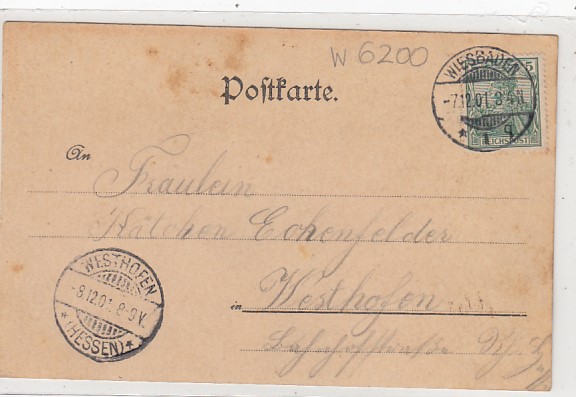 W 6200
WIESBADEN
-7.12.01. 8-9.N.
5
REICHSPOST
Postkarte.
An
Fräulein
Kätchen Eckenfelder
in Westhofen
Bahnhofstraße
WESTHOFEN
-8.12.01. 8-9 V.
*(HESSEN)*